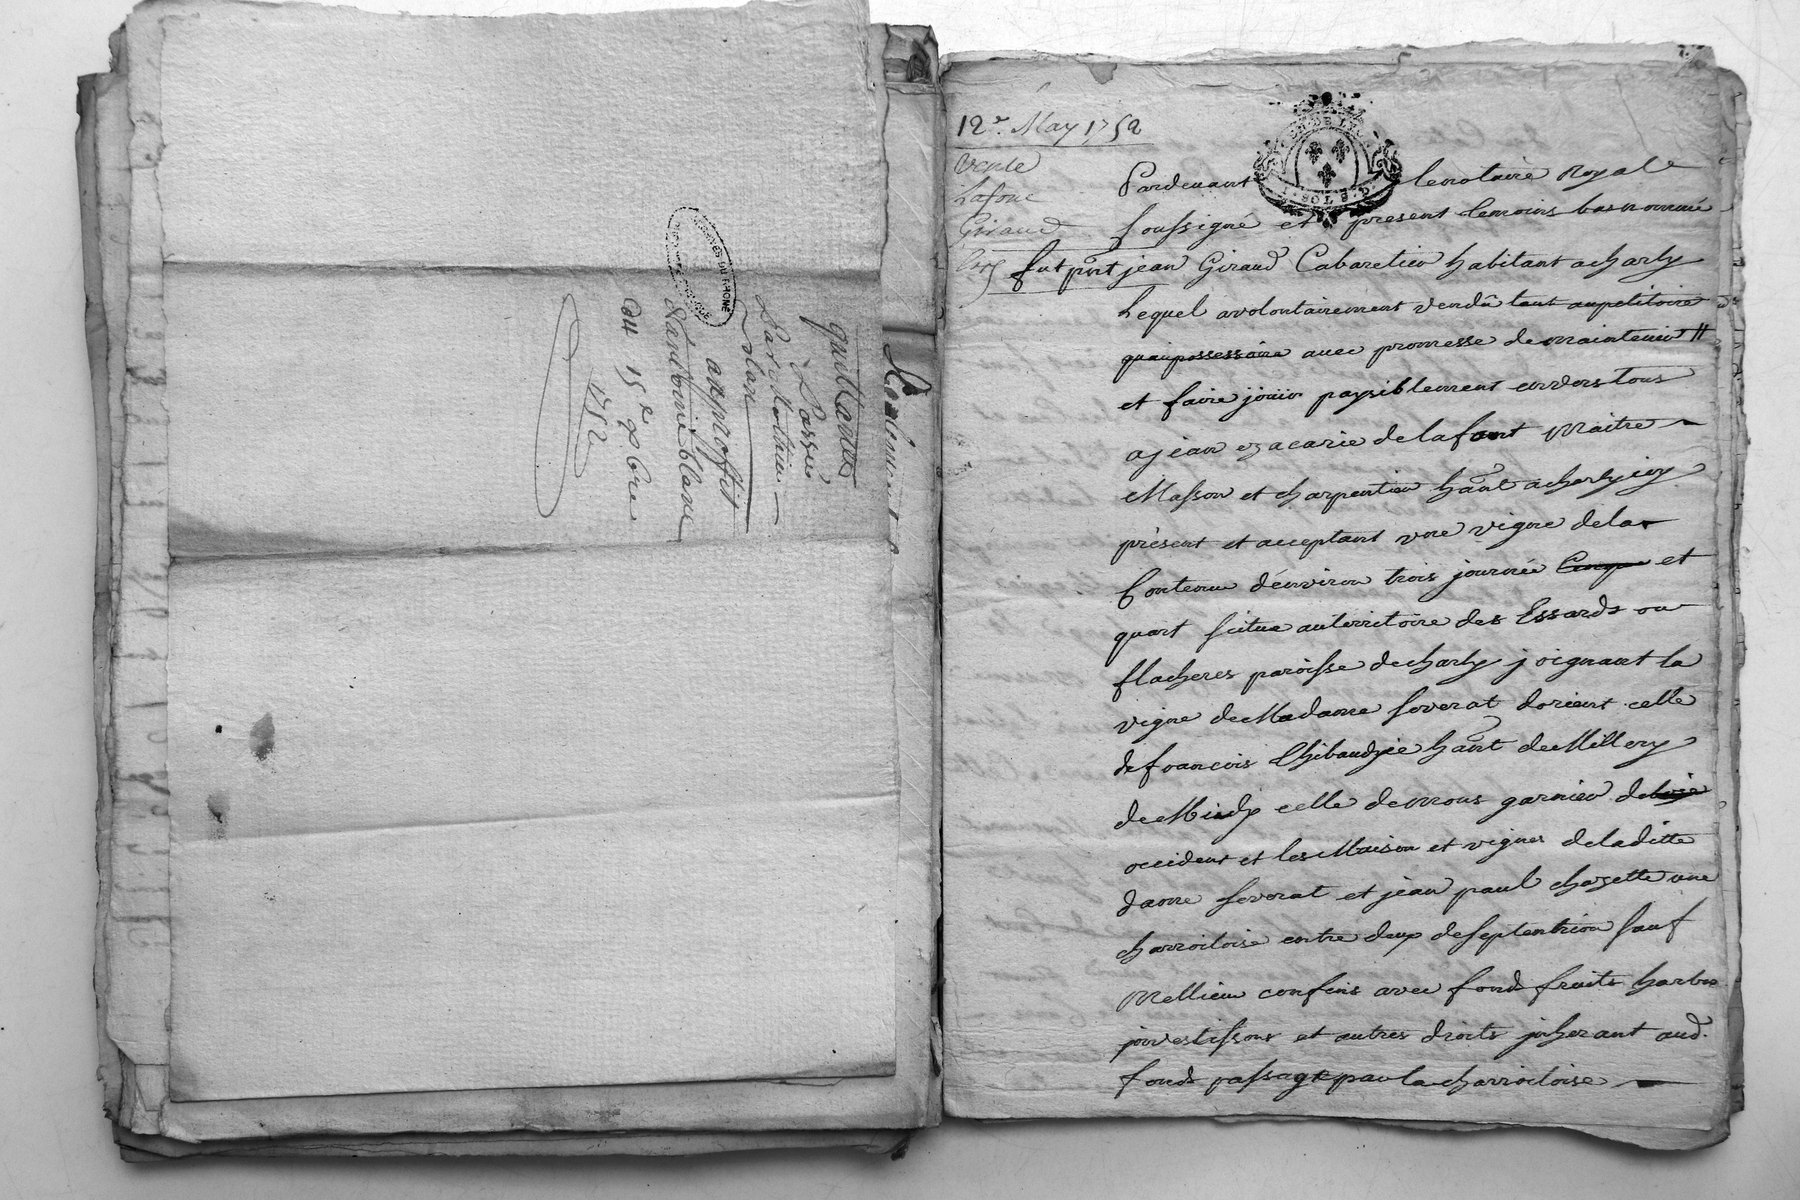 quittance
Passée
par Mathieu
au proffit
d'andoiné blanc
du 15e xbre
1752
12e. May 1752
Vente
Lafont
Giraud
Pardevant lenotaire Royale
soussigné et present temoins basnommé
fut pnt jean Giraud Cabaretier habitant acharly
Lequel avolontairement vendû tant aupetitoire
quaupossessoire avec promesse demaintenir
et faire jouïr paysiblement envers tous
ajean ezacarie delafont Maitre
Masson et charpentier hant acharly icy
présent et acceptant une vigne dela
Contenue d'environ trois journée et
quart scitue auterritoire des Essards ou
flacheres paroisse decharly joignant la
vigne deMadame soverat dorient celle
defrancois Thibaudjié hant deMillery
deMidy celle demons garnier
occident et lesMaison et vignes deladitte
dame soverat et jean paul chazette une
charroitoise entre deux deseptentrion sauf
Mellieur confins avec fonds fruits harbes
jnvestissons et autres droits jnherant aud.
fonds passage par lacharroitoise